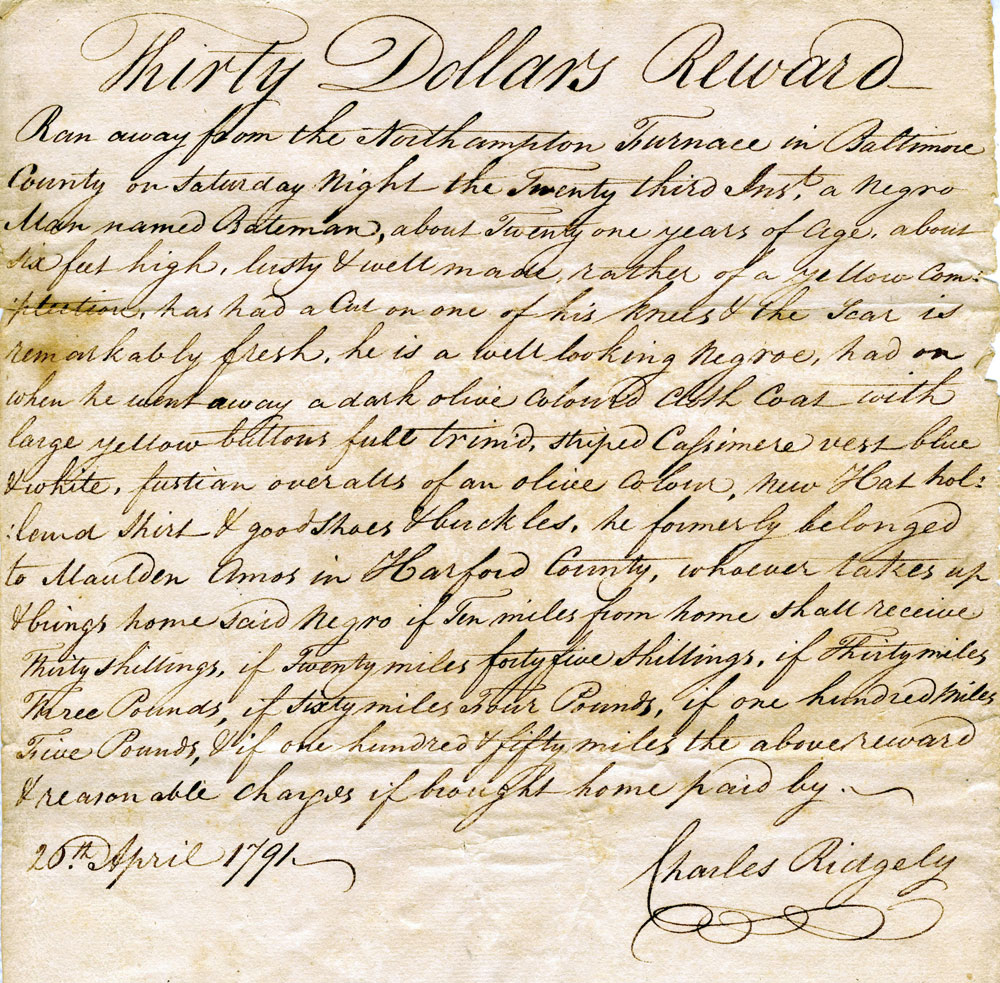 Thirty Dollars Reward
Ran away from the Northampton Furnace in Baltimore
County on Saturday Night the Twenty third Inst. a Negro
Man named Bateman, about Twenty one years of Age, about
six feet high, lusty & well made, rather of a yellow Com:
:plection, has had a Cut on one of his knees & the Scar is
remarkably fresh, he is a well looking Negroe, had on
when he went away a dark olive Coloured Cloth Coat with
large yellow buttons full trim'd, striped Cassimere vest blue
& white, fustian overalls of an olive Colour, New Hat hol:
:land Shirt & good Shoes & buckles, he formerly belonged
to Maulden Amos in Harford County, whoever takes up
& brings home said Negro if Ten miles from home shall receive
Thirty Shillings, if Twenty miles forty five Shillings, if Thirty miles
Three Pounds, if Sixty miles Four Pounds, if one hundred Miles
Five Pounds, & if one hundred & fifty miles the above reward
& reasonable Charges if brought home paid by.
26th. April 1791
Charles Ridgely